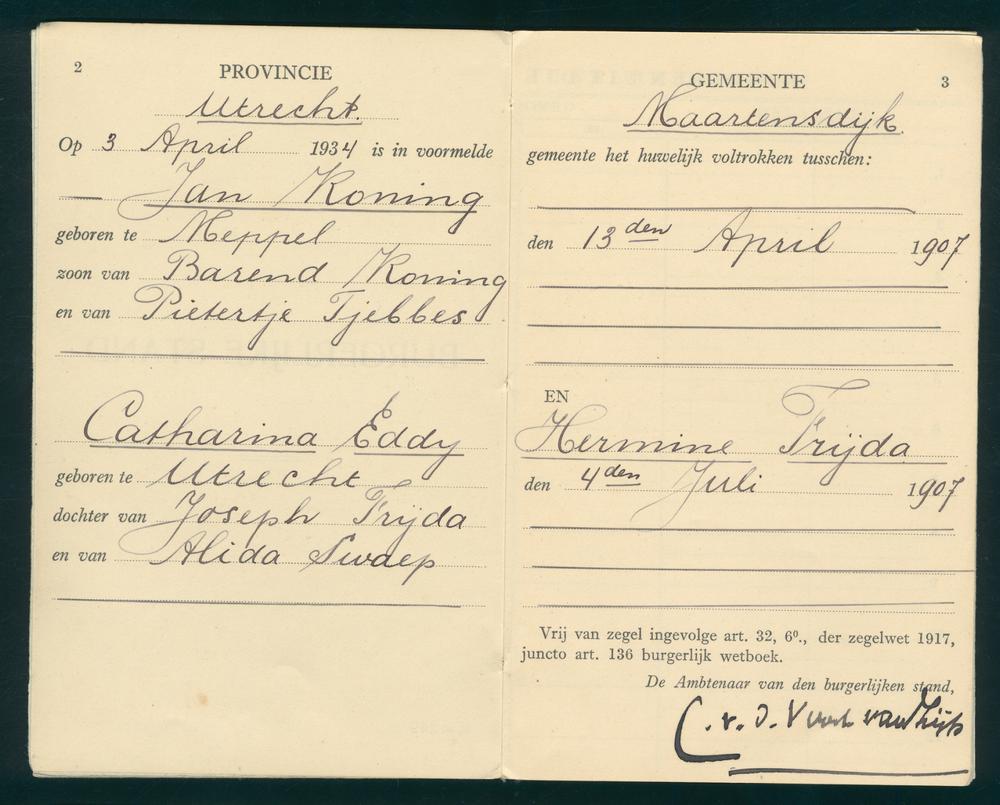 2
PROVINCIE
Utrecht.
Op 3 April 1934 is in voormelde
Jan Koning
geboren te Meppel
zoon van Barend Koning
en van Pietertje Tjebbes
Catharina Eddy
geboren te Utrecht
dochter van Joseph Frijda
en van Alida Swaep
GEMEENTE 3
Maartensdijk.
gemeente het huwelijk voltrokken tusschen:
den 13den April 1907
EN
Hermine Frijda
den 4den Juli 1907
Vrij van zegel ingevolge art. 32, 6º., der zegelwet 1917,
juncto art. 136 burgerlijk wetboek.
De Ambtenaar van den burgerlijken stand,
C. v. d. Voort van Zijp